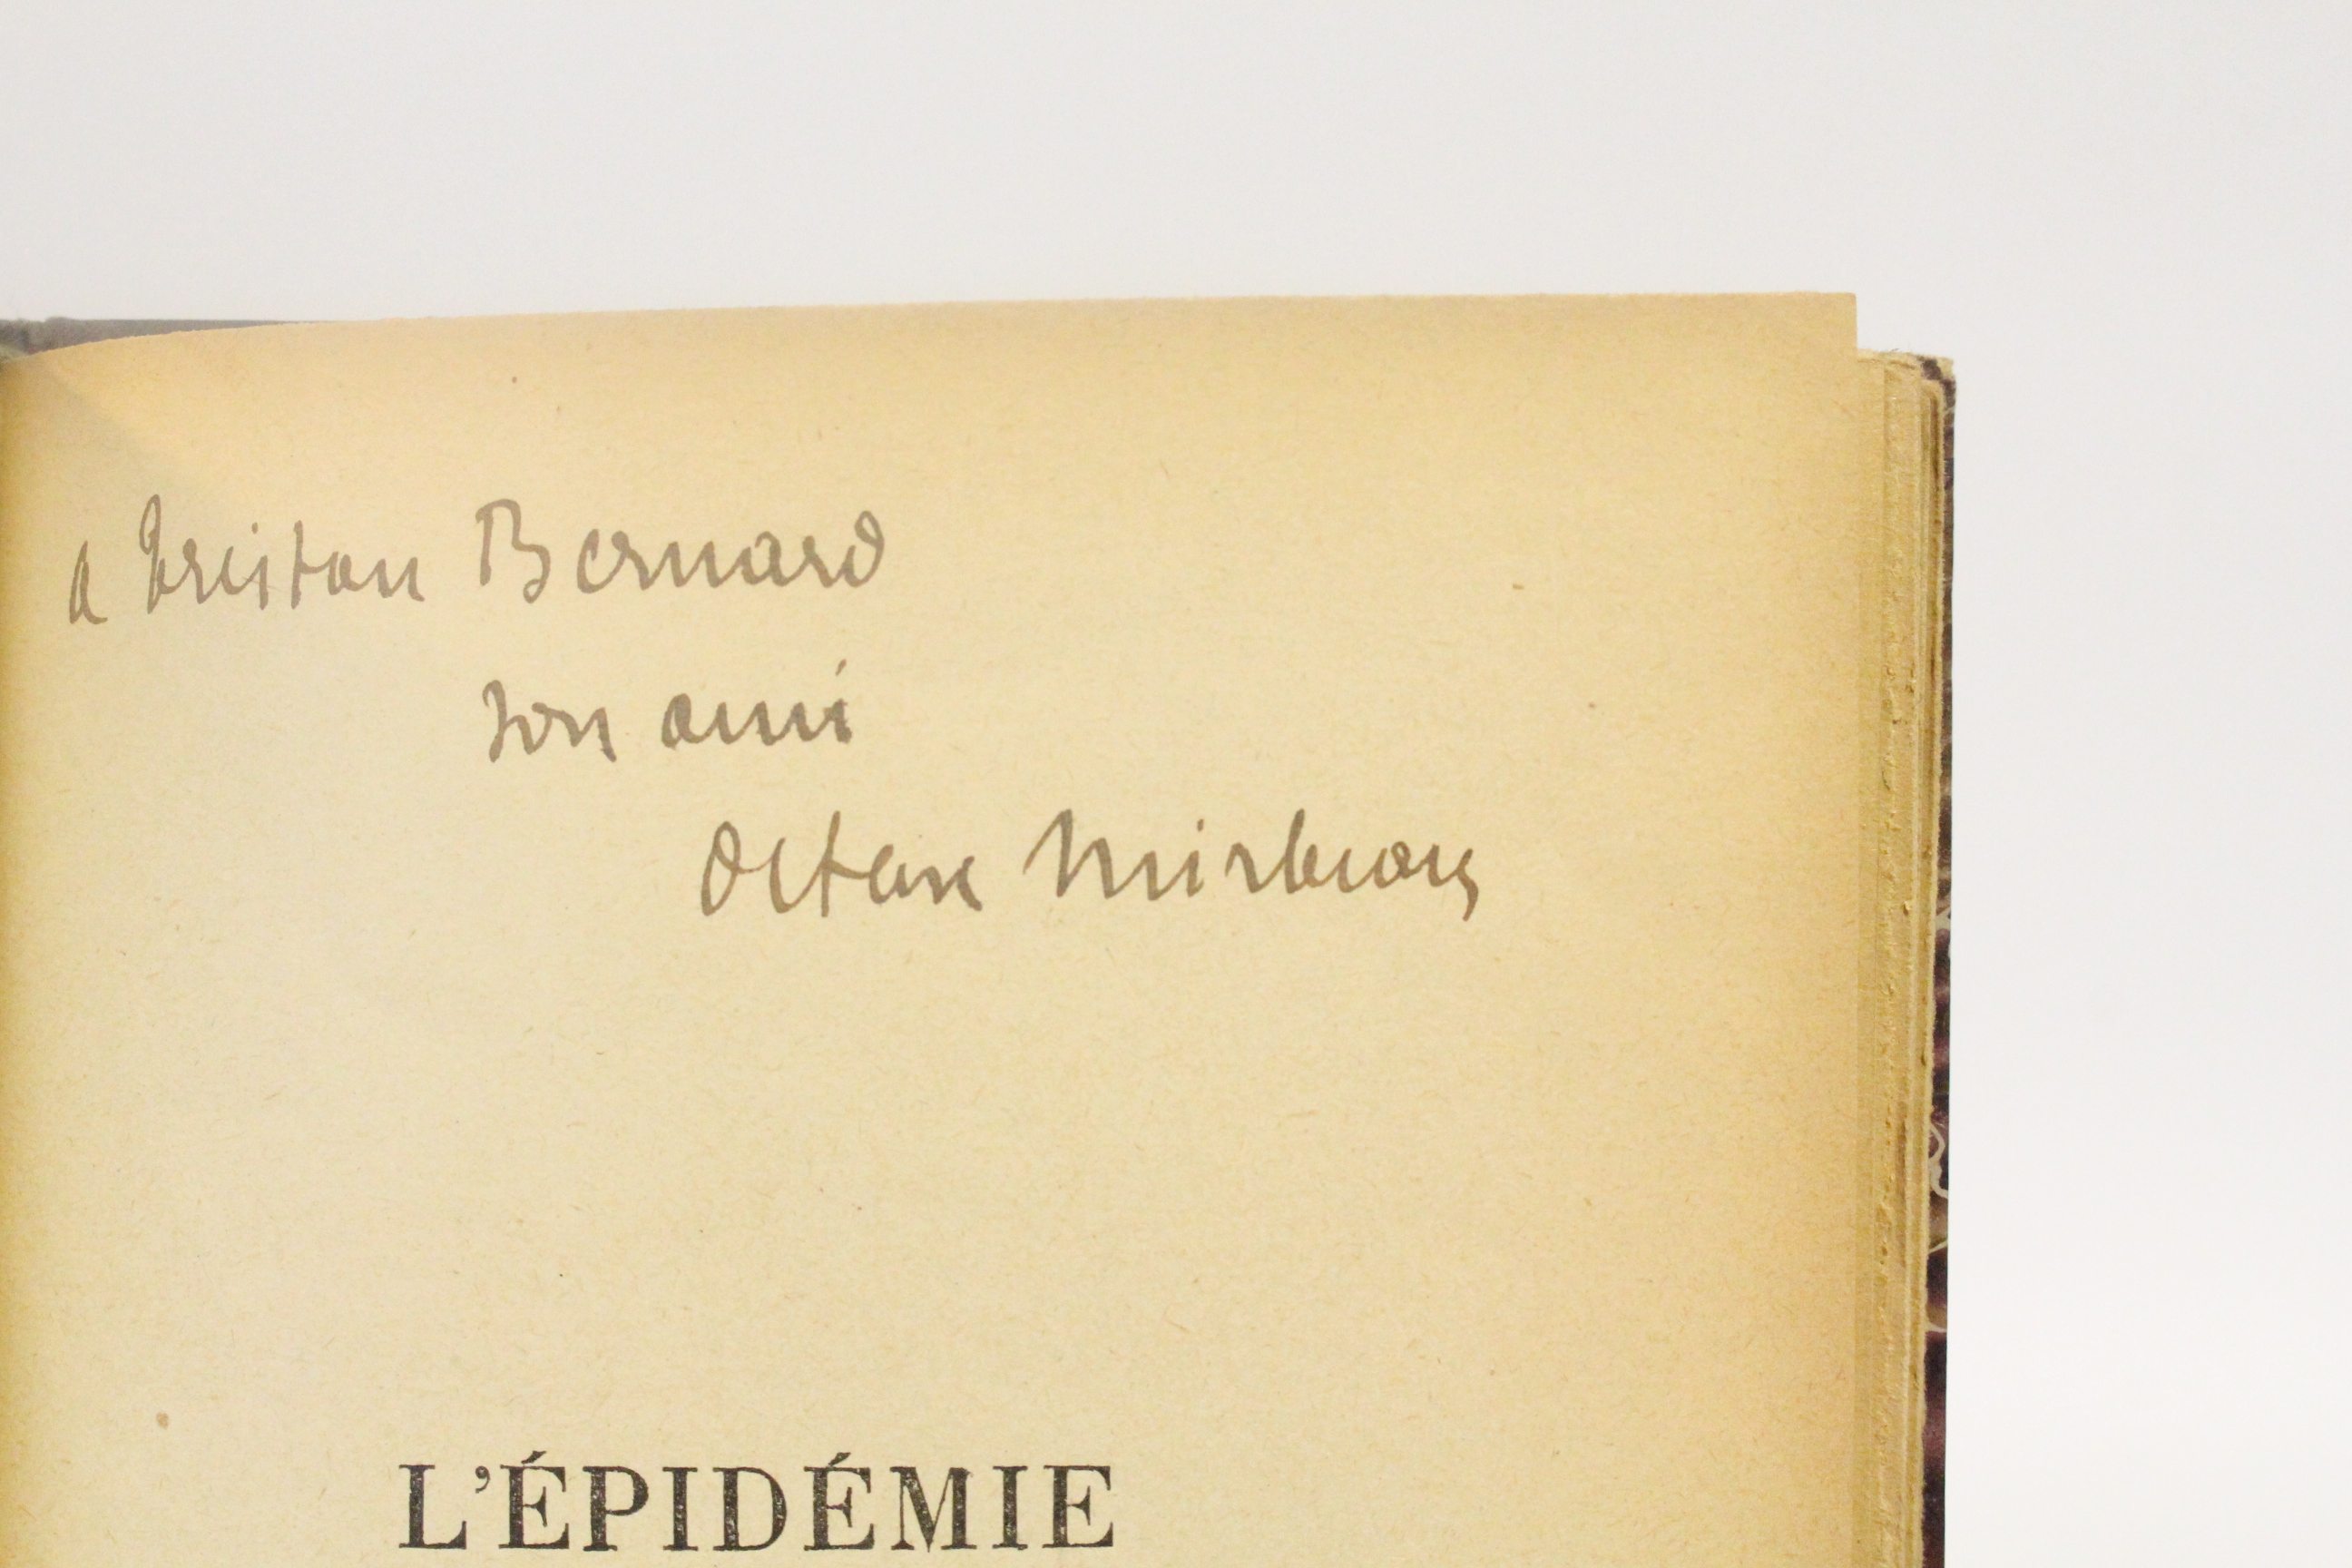 a Tristan Bernard
son ami
Octave Mirbeau
L'ÉPIDÉMIE